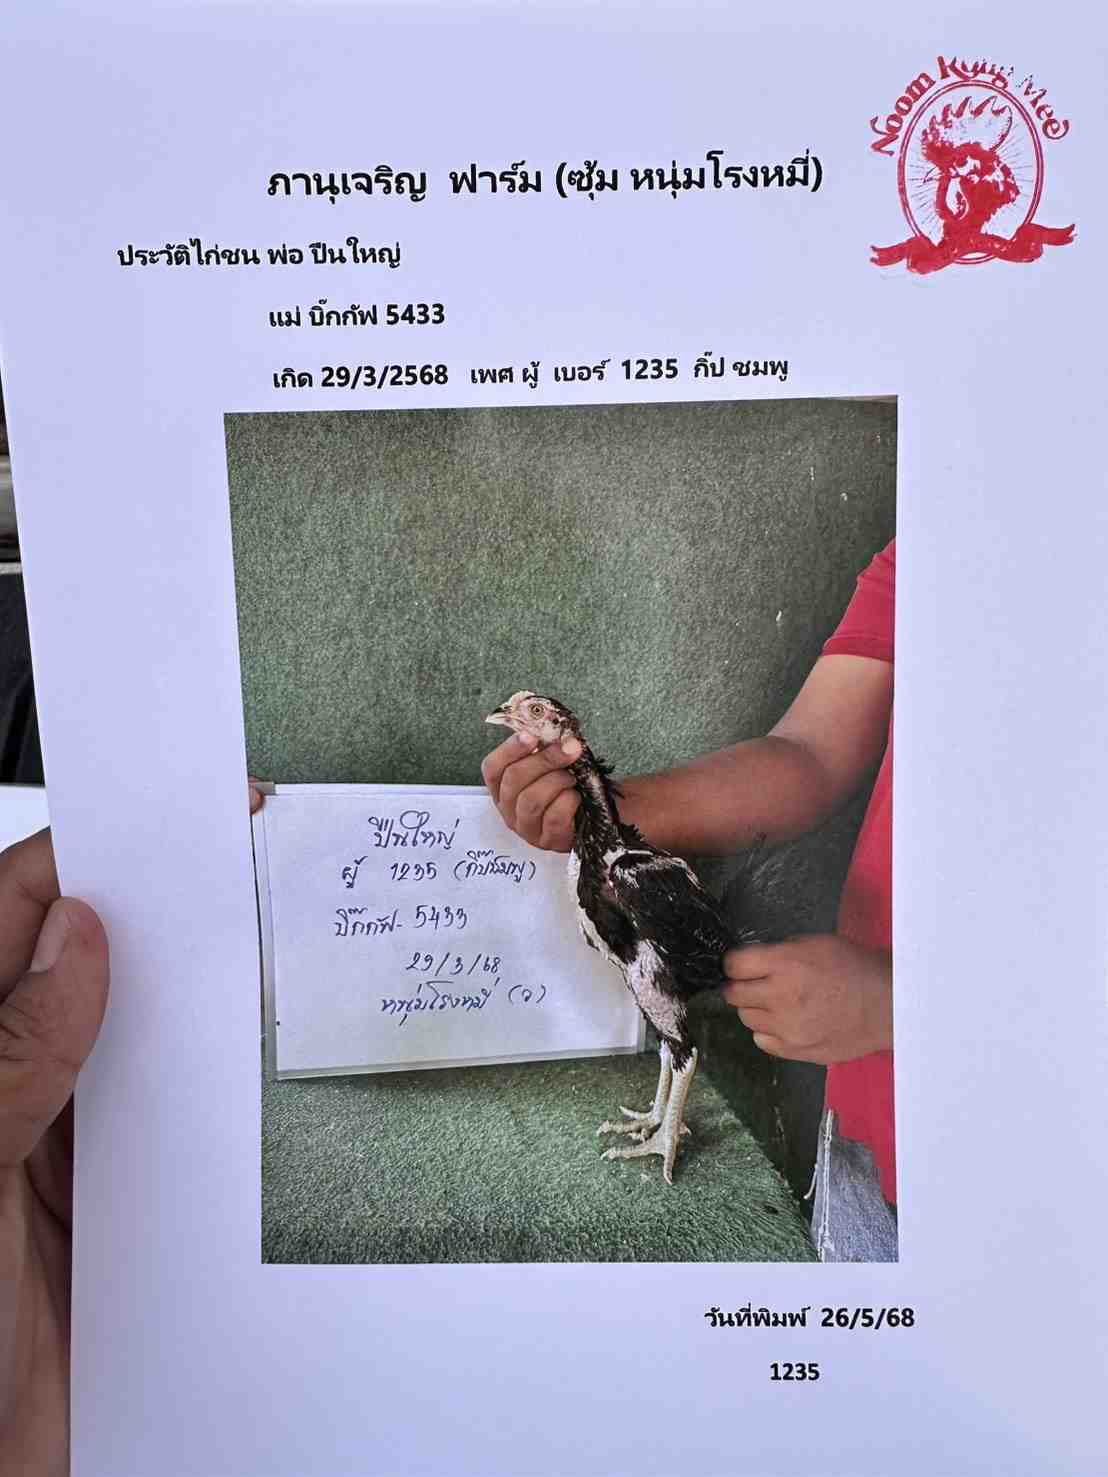 Noom Rong Mee
ภานุเจริญ ฟาร์ม (ซุ้ม หนุ่มโรงหมี่)
ประวัติไก่ชน พ่อ ปืนใหญ่
แม่ บิ๊กกัฟ 5433
เกิด 29/3/2568 เพศ ผู้ เบอร์ 1235 กิ๊ป ชมพู
ปืนใหญ่
ผู้ 1235 (กิ๊ปชมพู)
บิ๊กกัฟ- 5433
29/3/68
หนุ่มโรงหมี่ (ว)
วันที่พิมพ์ 26/5/68
1235